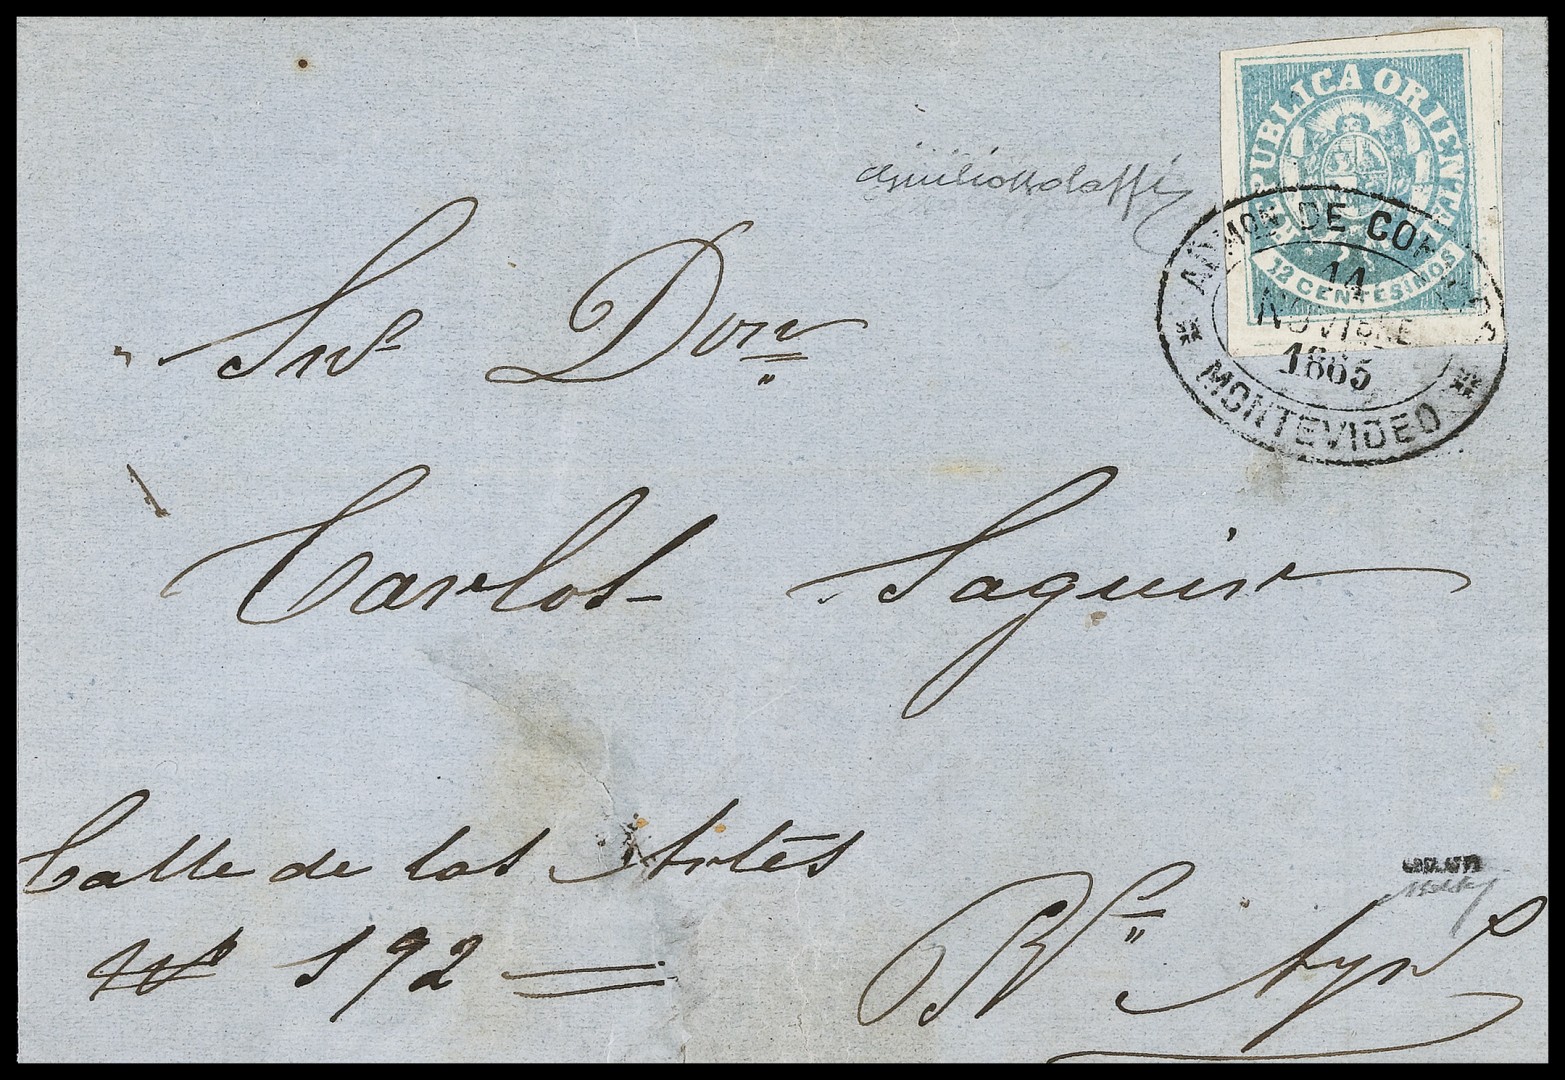 REPUBLICA ORIENTAL
12 CENTESINOS
ADMON DE CORREOS
14
NOVIBRE
1865
MONTEVIDEO
Sor Don
Carlos Saguier
Calle de las Artes
No 192
Bs Ayrs